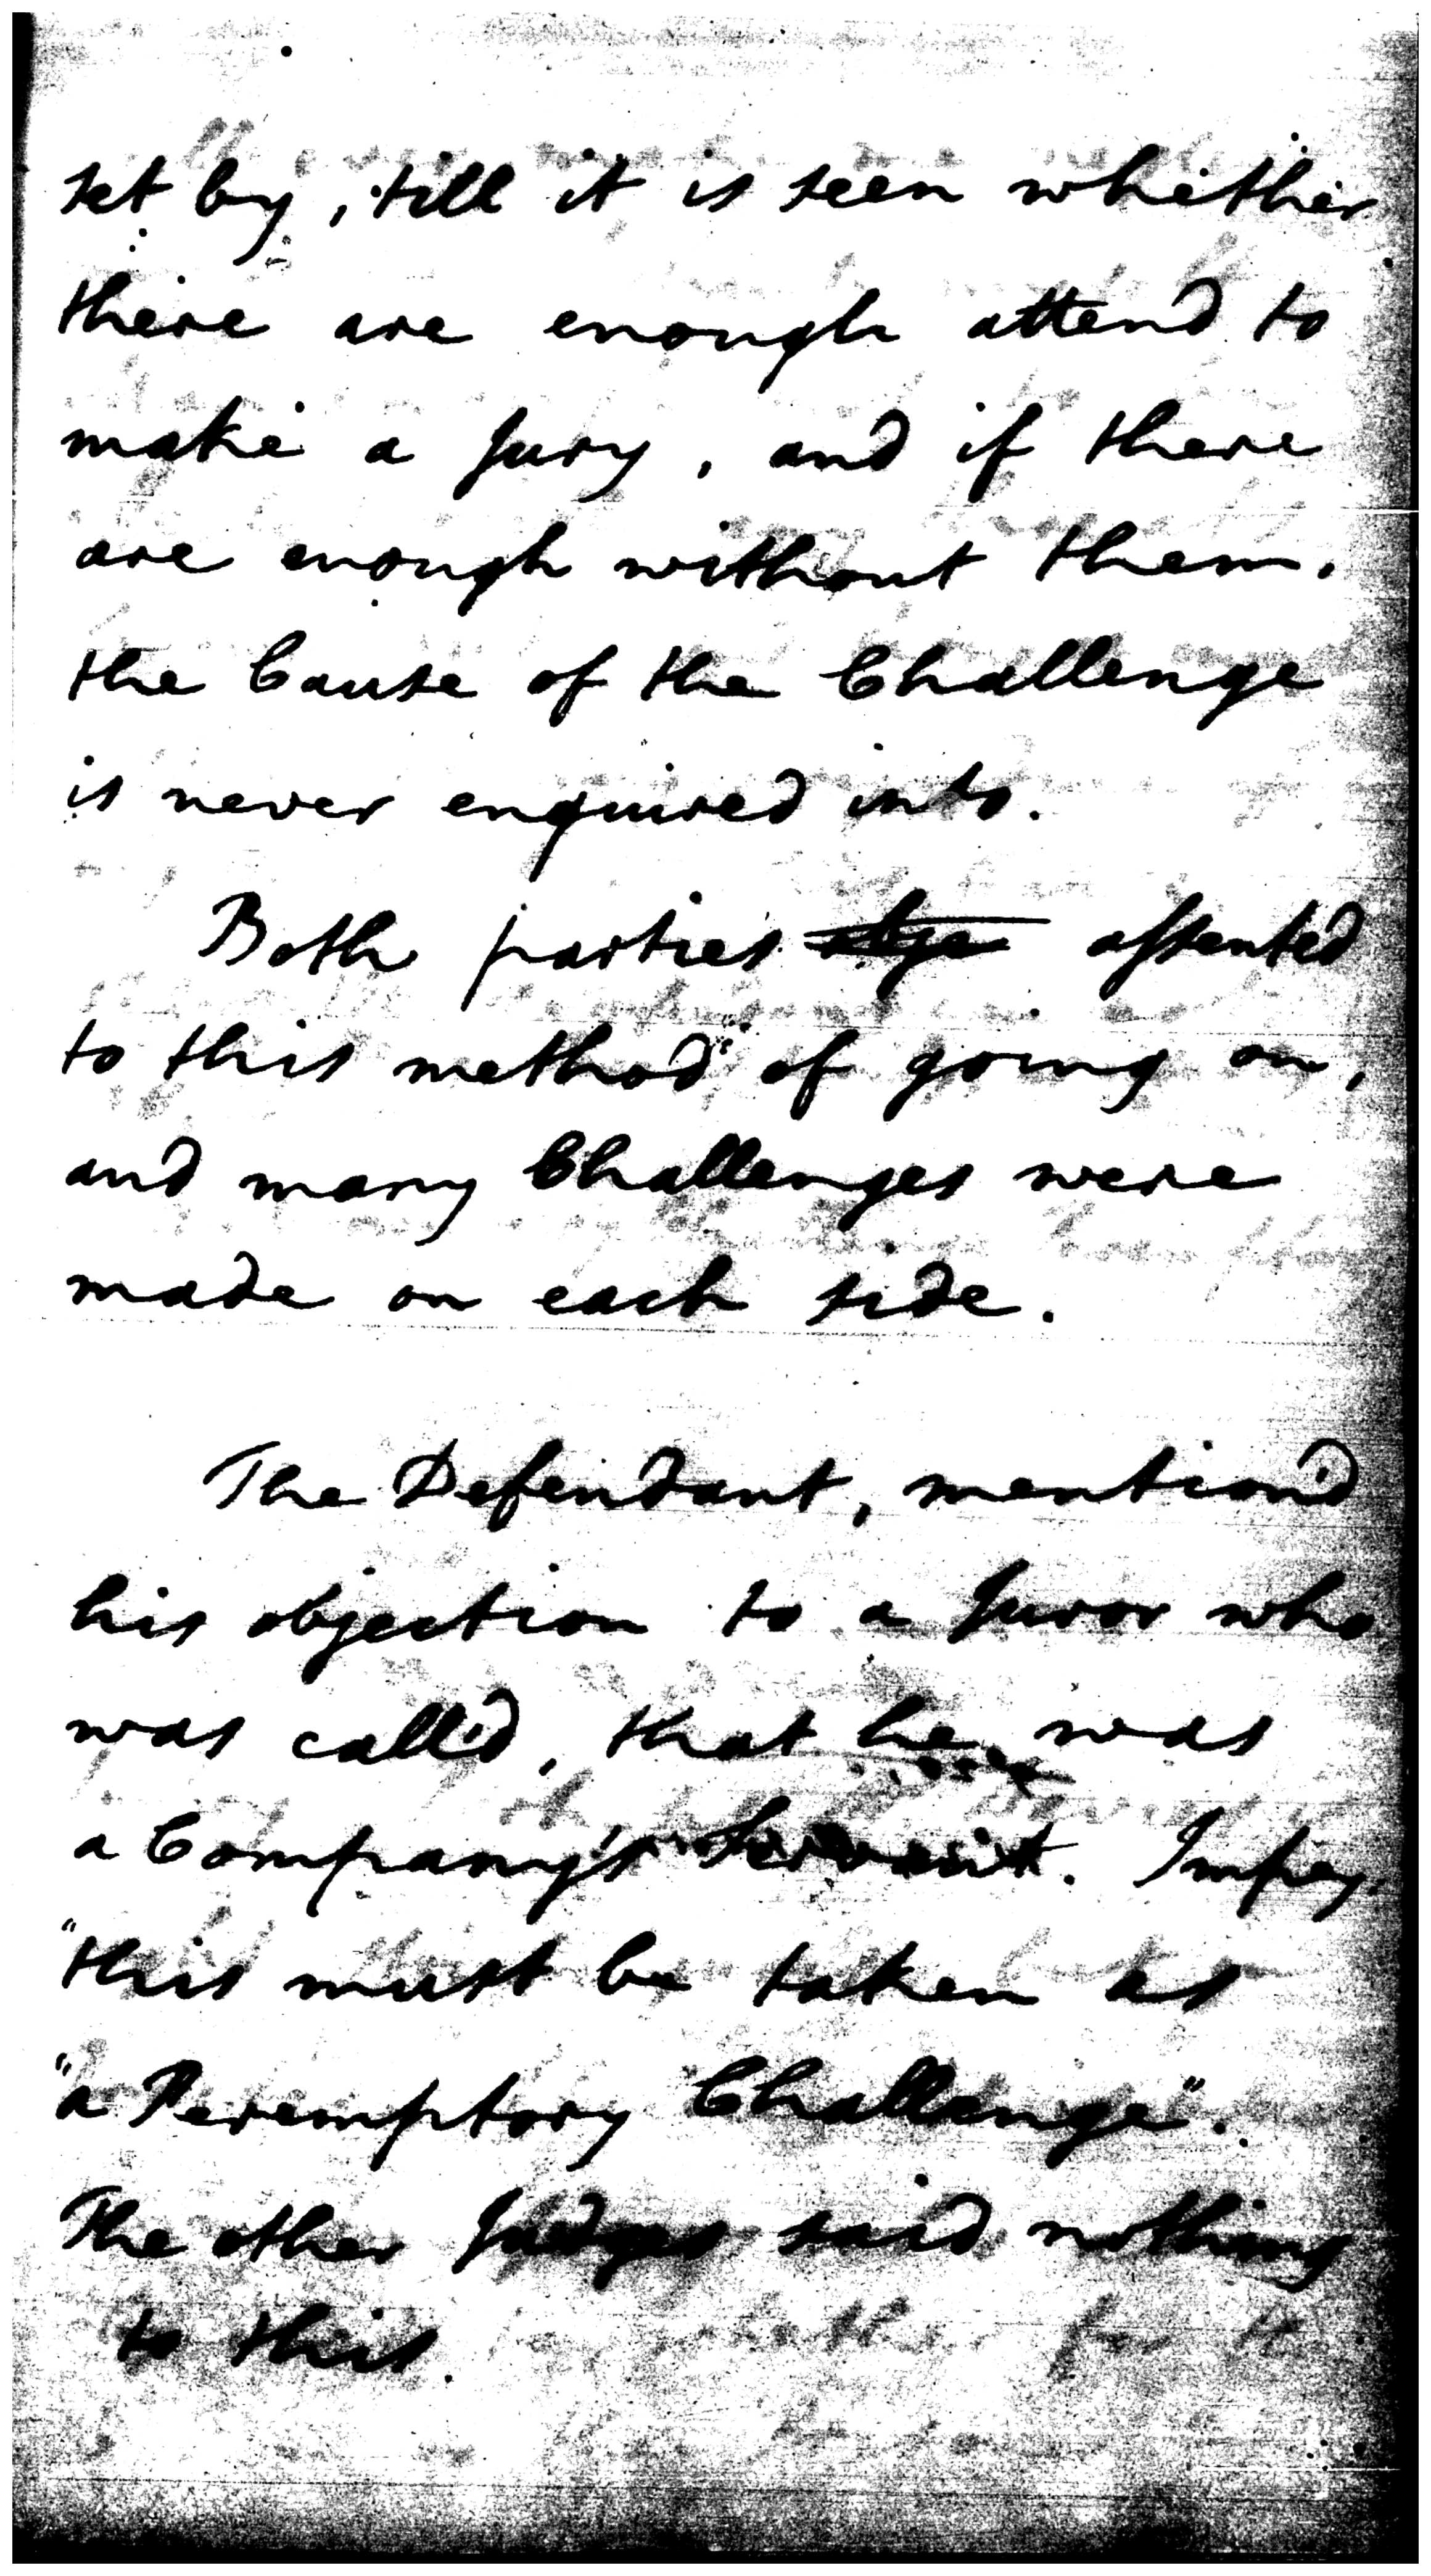 set by, till it is seen whether
there are enough attend to
make a Jury, and if there
are enough without them,
the Cause of the Challenge
is never enquired into.
Both parties assented
to this method of going on,
and many Challenges were
made on each side.
The Defendant, mention'd
his objection to a Juror who
was call'd, that he was
a Company's Servant. Impey.
"this must be taken as
"a Peremptory Challenge".
The other Judges said nothing
to this.